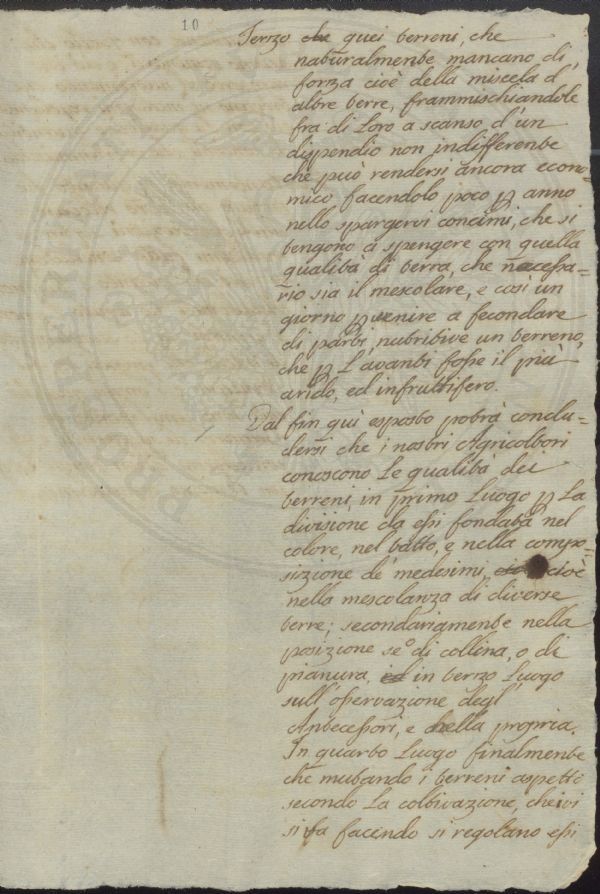 10
Terzo che quei terreni, che
naturalmente mancano di
forza cioè della miscela d'
altre terre, frammischiandole
fra di Loro a scanso d'un
dispendio non indifferente
che può rendersi ancora econo=
mico, facendolo poco p anno
nello spargervi concimi, che si
tengono a spengere con quella
qualità di terra, che necessa=
rio sia il mescolare, e così un
giorno pvenire a fecondare
di parti nutritive un terreno,
che p L'avanti fosse il più
arido, ed infruttifero.
Dal fin quì esposto potrà conclu=
dersi che i nostri Agricoltori
conoscono Le qualità dei
terreni, in primo Luogo p La
divisione da essi fondata nel
colore, nel tatto, e nella compo=
sizione de' medesimi, cioè
nella mescolanza di diverse
terre; secondariamente nella
posizione se° di collina, o di
pianura, ed in terzo Luogo
sull'osservazione degl'
Antecessori, e della propria.
In quarto Luogo finalmente
che mutando i terreni aspetto
secondo La coltivazione, che ivi
si va facendo si regolano essi